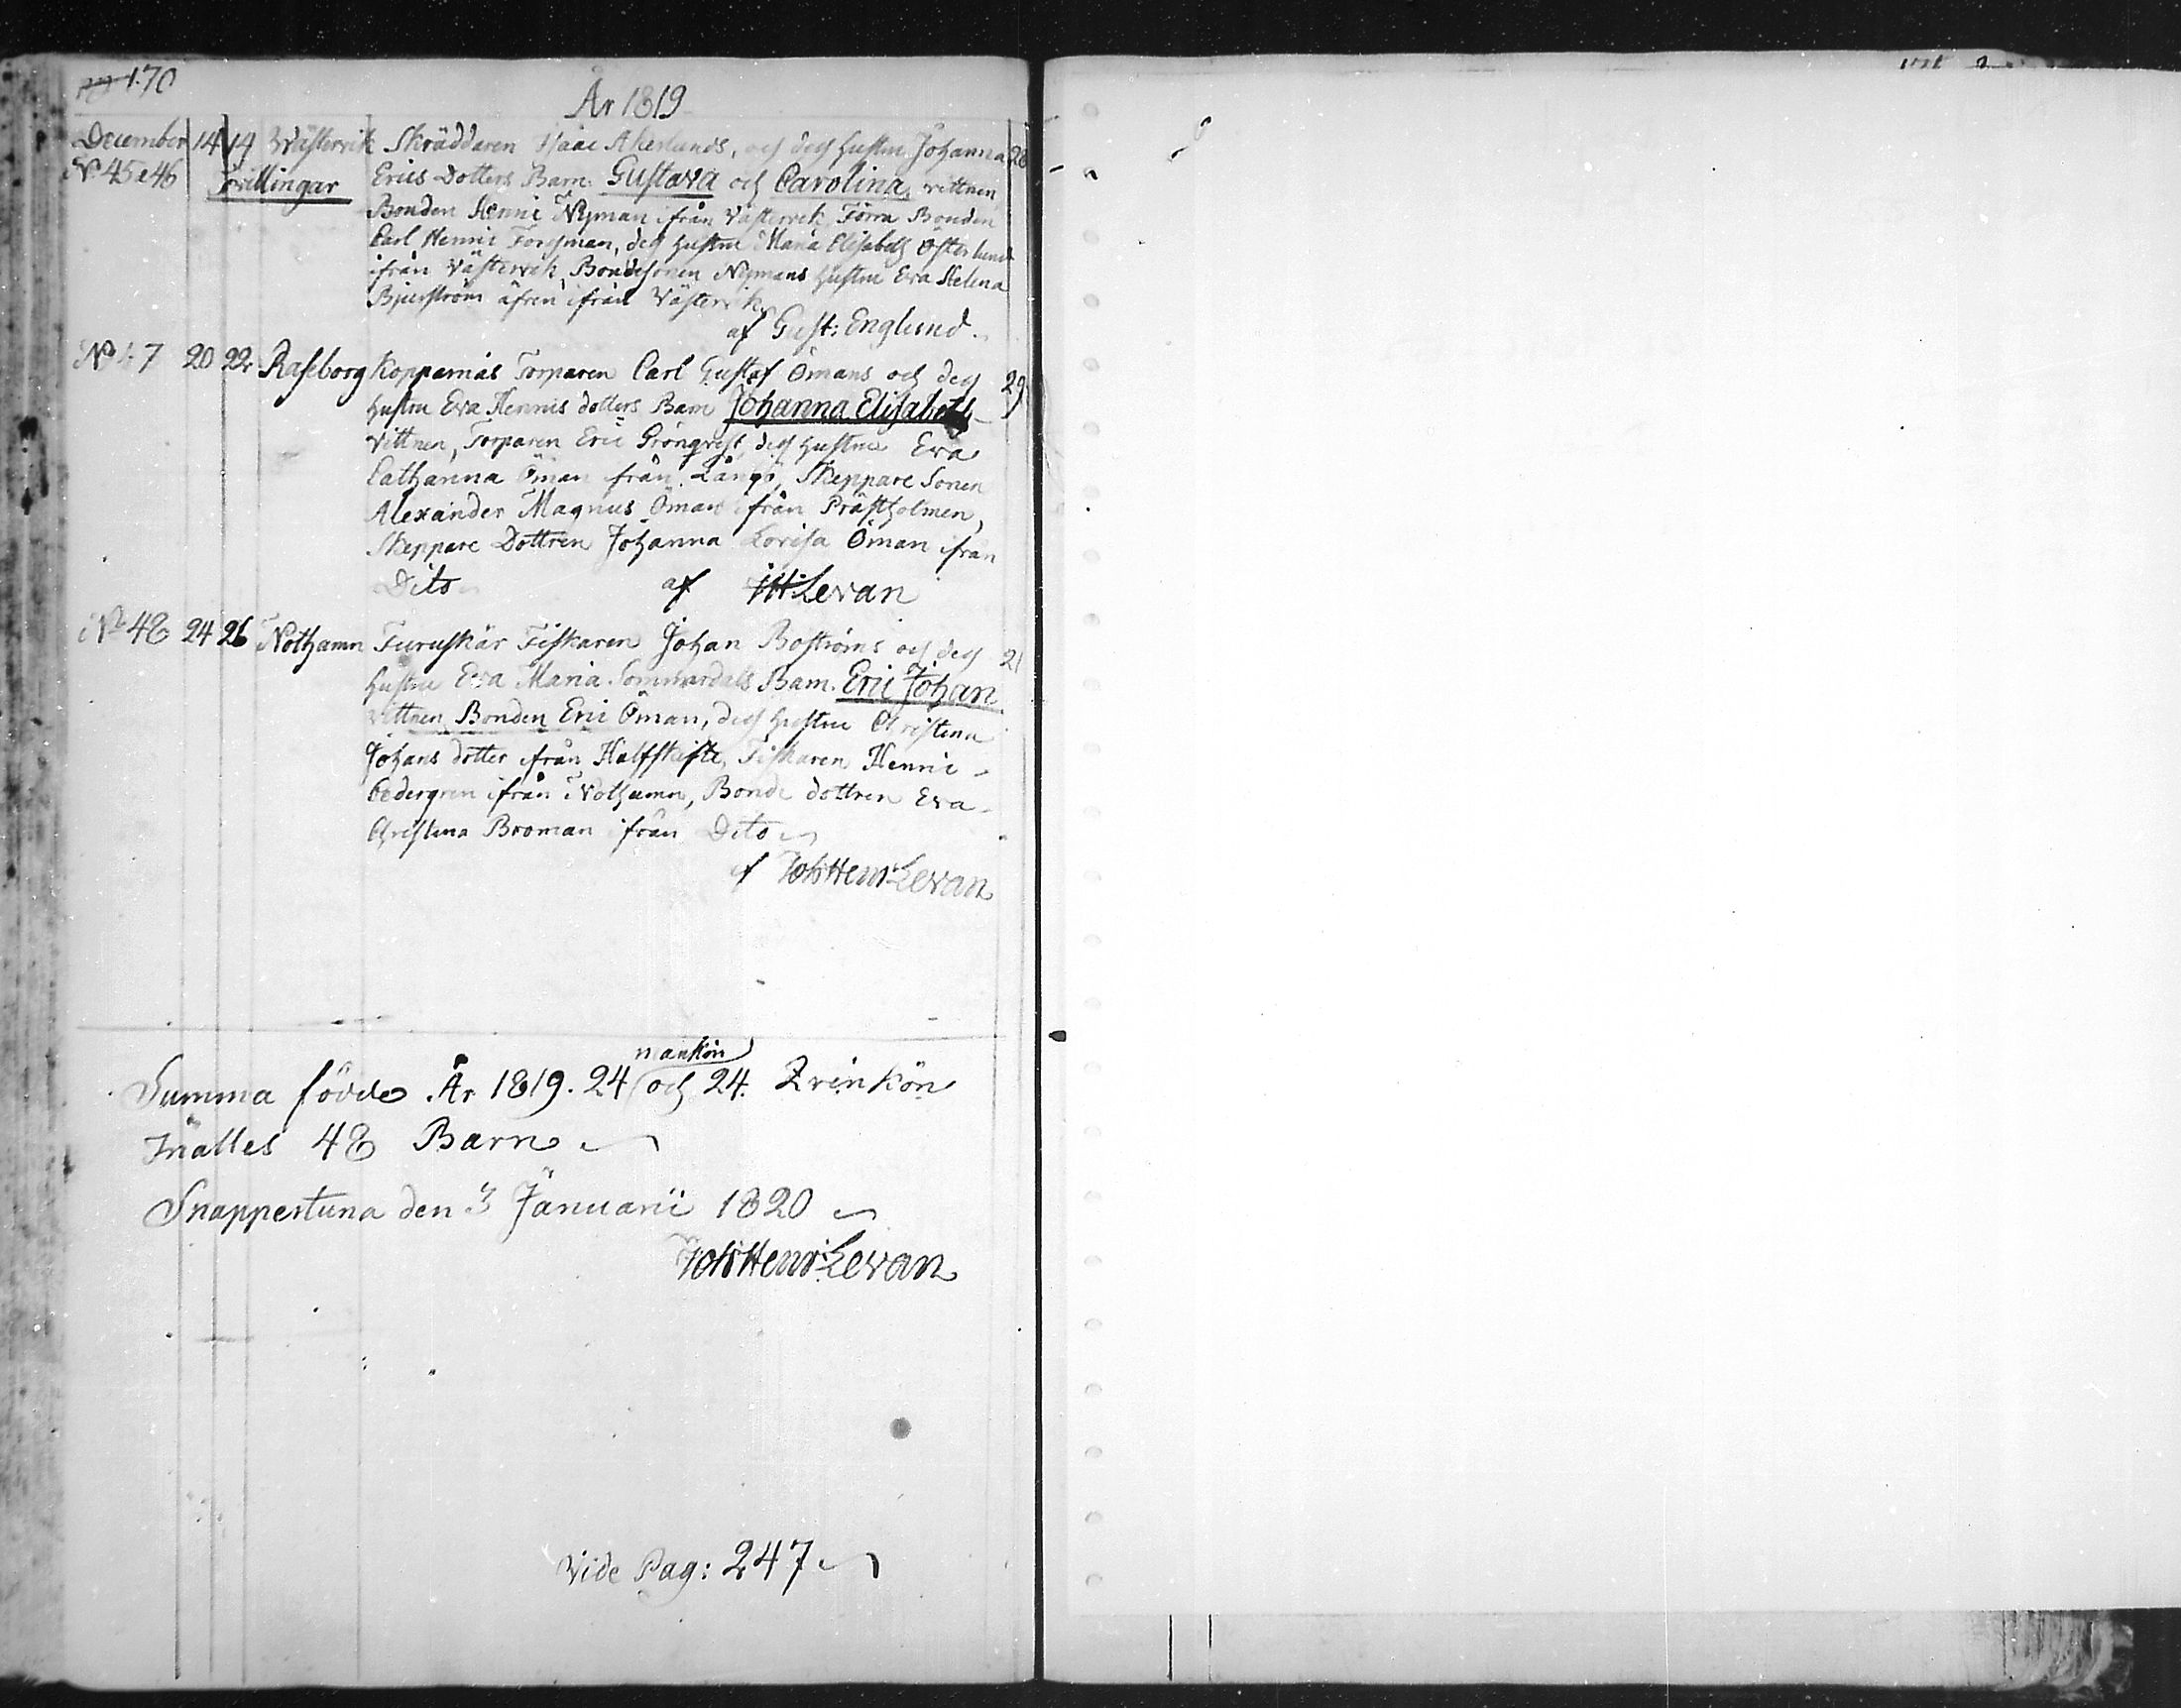 170
År 1819
December 14 14 Wästervik Skräddaren Isaac Akerlunds, och des hustru Johanna 28
No 45 e 46 Tvillingar Erics Dotters Barn Gustava och Carolina, vittnen
Bonden Henric Nyman ifrån Västervik, Förra Bonden
Carl Henric Forsman, des hustru Maria Elisabeth Österlund
ifrån Västervik, Bondesonen Nymans hustru Eva Helena
Bjurström äfven ifrån Västervik
af Gust: Englund.
No 47 20 22 Raseborg Koppernäs Torparen Carl Gustaf Ömans och des 29
hustru Eva Henrics dotters Barn Johanna Elisabeth
vittnen, Torparen Eric Grönqvist, des hustru Eva
Catharina Öman från Långö, Skeppare Sonen
Alexander Magnus Öman ifrån Prästholmen,
Skeppare Dottren Johanna Lovisa Öman ifrån
Dito af JH: Levan
No 48 24 26 Nothamn Furuskär Fiskaren Johan Boströms och des 21
hustru Eva Maria Sommardals Barn. Eric Johan
vittnen Bonden Eric Öman, des hustru Christina
Johans dotter ifrån Halfskifte, Fiskaren Henric
Cedergren ifrån Nothamn, Bonde dottren Eva
Christina Broman ifrån Dito
af Joh: Henr: Levan
mankön
Summa födde År 1819. 24 och 24. Qvinkön
Inalles 48 Barn
Snappertuna den 3 Januarii 1820
Joh: Henr: Levan
Vide Pag: 247